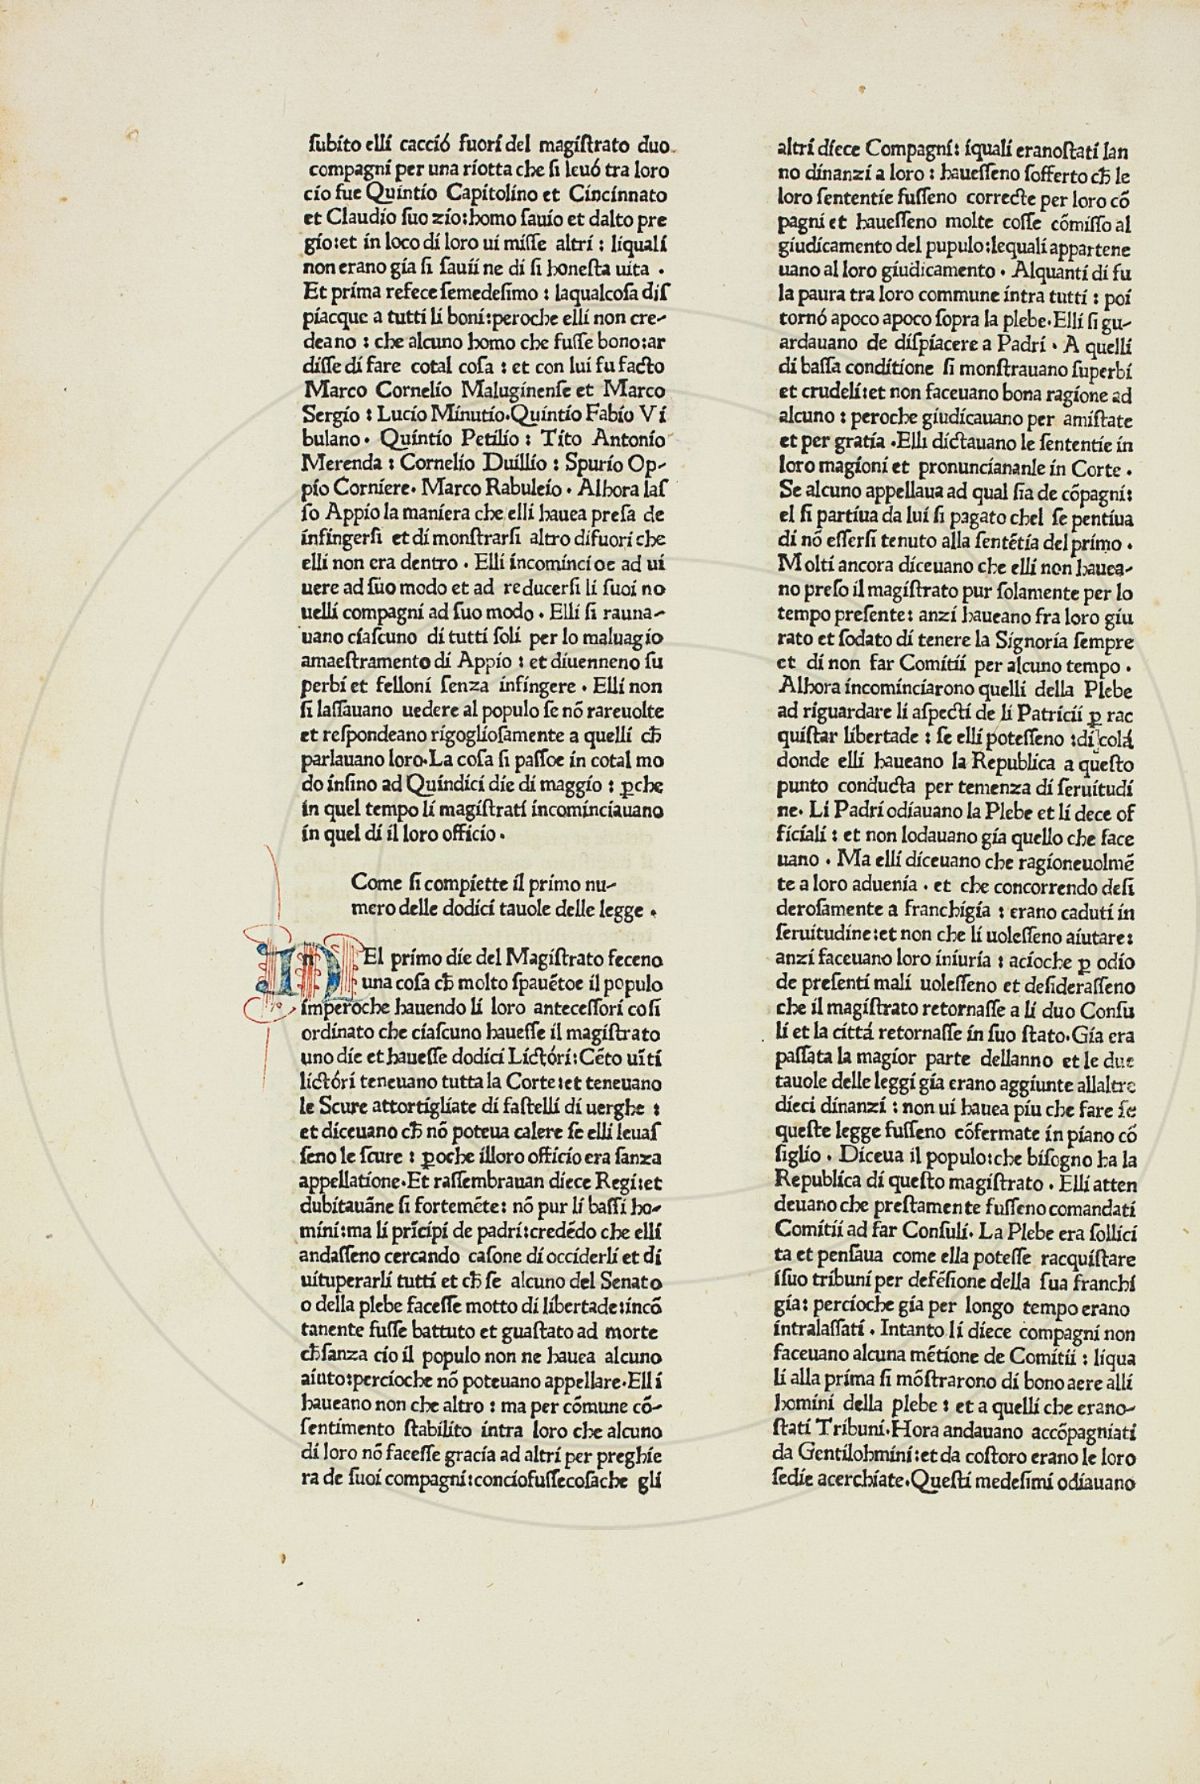 ſubito elli cacció fuori del magiſtrato duo
compagni per una riotta che ſi leuó tra loro
cio fue Quintio Capitolino et Cincinnato
et Claudio ſuo zio:homo ſauio et dalto pre
gio:et in loco di loro ui miſſe altri : liquali
non erano gia ſi ſauii ne di ſi honeſta uita .
Et prima refece ſemedeſimo : laqualcoſa diſ
piacque a tutti li boni:peroche elli non cre-
deano : che alcuno homo che fuſſe bono:ar
diſſe di fare cotal coſa : et con lui fu facto
Marco Cornelio Maluginenſe et Marco
Sergio : Lucio Minutio.Quintio Fabio Vi
bulano. Quintio Petilio : Tito Antonio
Merenda : Cornelio Duillio : Spurio Op-
pio Corniere. Marco Rabuleio . Alhora laſ
ſo Appio la maniera che elli hauea preſa de
infingerſi et di monſtrarſi altro difuori che
elli non era dentro . Elli incomincioe ad ui
uere ad ſuo modo et ad reducerſi li ſuoi no
uelli compagni ad ſuo modo . Elli ſi rauna-
uano ciaſcuno di tutti ſoli per lo maluagio
amaeſtramento di Appio : et diuenneno ſu
perbi et felloni ſenza infingere . Elli non
ſi laſſauano uedere al populo ſe nō rareuolte
et reſpondeano rigoglioſamente a quelli cħ
parlauano loro.La coſa ſi paſſoe in cotal mo
do inſino ad Quindici die di maggio : ꝑche
in quel tempo li magiſtrati incominciauano
in quel di il loro officio .
Come ſi compiette il primo nu-
mero delle dodici tauole delle legge .
NEl primo die del Magiſtrato feceno
una coſa cħ molto ſpauētoe il populo
imperoche hauendo li loro anteceſſori coſi
ordinato che ciaſcuno haueſſe il magiſtrato
uno die et haueſſe dodici Lictóri:Cēto uīti
lictóri teneuano tutta la Corte:et teneuano
le Scure attortigliate di faſtelli di uerghe :
et diceuano cħ nō poteua calere ſe elli leuaſ
ſeno le ſcure : ꝑoche illoro officio era ſanza
appellatione.Et raſſembrauan diece Regi:et
dubitauāne ſi fortemēte: nō pur li baſſi ho-
mini:ma li prīcipi de padri:credēdo che elli
andaſſeno cercando caſone di occiderli et di
uituperarli tutti et cħ ſe alcuno del Senato
o della plebe faceſſe motto di libertade:incō
tanente fuſſe battuto et guaſtato ad morte
cħſanza cio il populo non ne hauea alcuno
aiuto:percioche nō poteuano appellare.Elli
haueano non che altro : ma per cōmune cō-
ſentimento ſtabilito intra loro che alcuno
di loro nō faceſſe gracia ad altri per preghie
ra de ſuoi compagni:conciofuſſecoſache gli
altri diece Compagni: iquali eranoſtati lan
no dinanzi a loro : haueſſeno ſofferto cħ le
loro ſententie fuſſeno correcte per loro cō
pagni et haueſſeno molte coſſe cōmiſſo al
giudicamento del pupulo:lequali appartene
uano al loro giudicamento . Alquanti di fu
la paura tra loro commune intra tutti : poi
tornó apoco apoco ſopra la plebe.Elli ſi gu-
ardauano de diſpiacere a Padri . A quelli
di baſſa conditione ſi monſtrauano ſuperbi
et crudeli:et non faceuano bona ragione ad
alcuno : peroche giudicauano per amiſtate
et per gratia .Elli dictauano le ſententie in
loro magioni et pronunciananle in Corte .
Se alcuno appellaua ad qual ſia de cōpagni:
el ſi partiua da lui ſi pagato chel ſe pentiua
di nō eſſerſi tenuto alla ſentētia del primo .
Molti ancora diceuano che elli non hauea-
no preſo il magiſtrato pur ſolamente per lo
tempo preſente: anzi haueano fra loro giu
rato et ſodato di tenere la Signoria ſempre
et di non far Comitii per alcuno tempo .
Alhora incominciarono quelli della Plebe
ad riguardare li aſpecti de li Patricii ꝑ rac
quiſtar libertade : ſe elli poteſſeno :di colá
donde elli haueano la Republica a queſto
punto conducta per temenza di ſeruitudi
ne. Li Padri odiauano la Plebe et li dece of
ficiali : et non lodauano gia quello che face
uano . Ma elli diceuano che ragioneuolmē
te a loro aduenia . et che concorrendo deſi
deroſamente a franchigia : erano caduti in
ſeruitudine:et non che li uoleſſeno aiutare:
anzi faceuano loro iniuria : acioche ꝑ odio
de preſenti mali uoleſſeno et deſideraſſeno
che il magiſtrato retornaſſe a li duo Conſu
li et la cittá retornaſſe in ſuo ſtato.Gia era
paſſata la magior parte dellanno et le due
tauole delle leggi gia erano aggiunte allaltre
dieci dinanzi : non ui hauea piu che fare ſe
queſte legge fuſſeno cōfermate in piano cō
ſiglio . Diceua il populo:che biſogno ha la
Republica di queſto magiſtrato . Elli atten
deuano che preſtamente fuſſeno comandati
Comitii ad far Conſuli. La Plebe era ſollici
ta et penſaua come ella poteſſe racquiſtare
iſuo tribuni per defēſione della ſua franchi
gia: percioche gia per longo tempo erano
intralaſſati . Intanto li diece compagni non
faceuano alcuna mētione de Comitii : liqua
li alla prima ſi mōſtrarono di bono aere alli
homini della plebe : et a quelli che erano-
ſtati Tribuni.Hora andauano accōpagniati
da Gentilohmini:et da coſtoro erano le loro
ſedie acerchiate.Queſti medeſimi odiauano